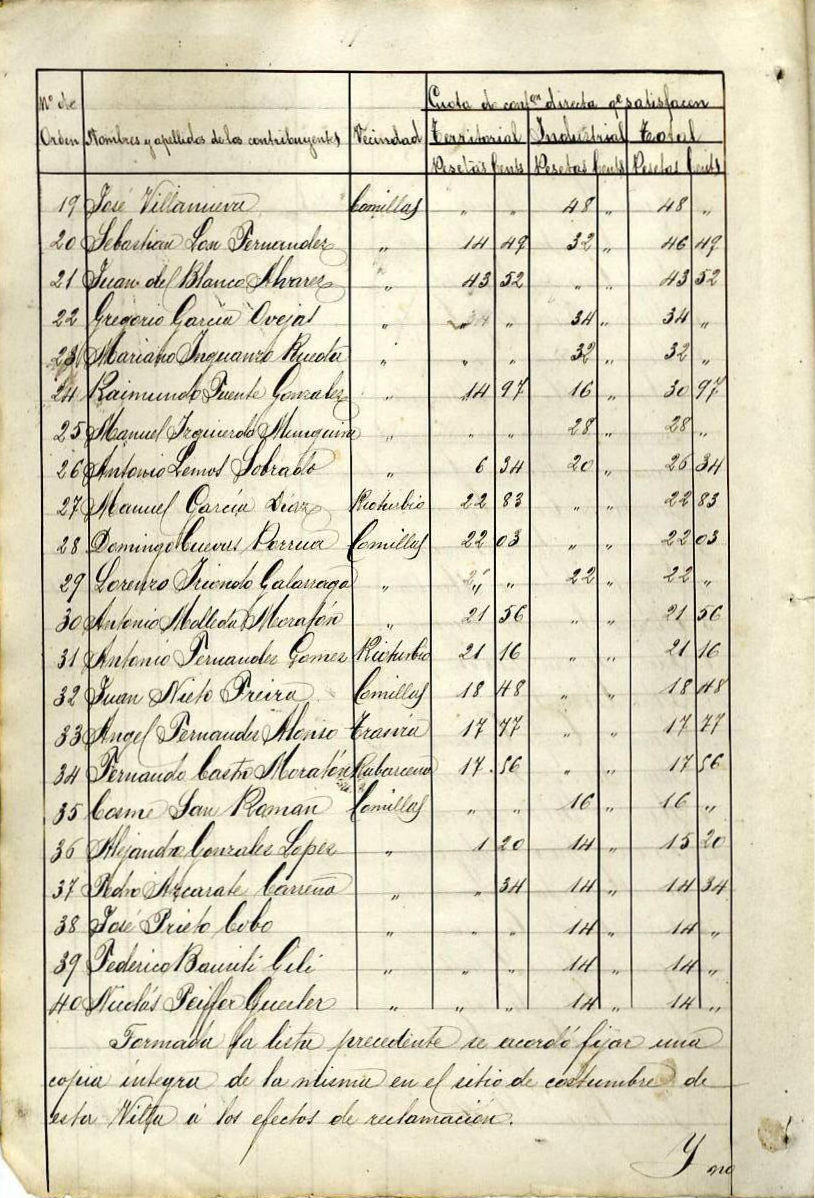 Nº de Orden Nombres y apellidos de los contribuyentes Vecindad Cuota de conton directa qe satisfacen
Territorial Industrial Total
Pesetas Cents Pesetas Cents Pesetas Cents
19 José Villanueva Comillas " " 48 " 48 "
20 Sebastian San Fernandez " 14 49 32 " 46 49
21 Juan del Blanco Alvarez " 43 52 " " 43 52
22 Gregorio García Ovejas " " " 34 " 34 "
23 Mariano Inguanzo Rueda " " " 32 " 32 "
24 Raimundo Fuente Gonzalez " 14 97 16 " 30 97
25 Manuel Izquierdo " " " 28 " 28 "
26 Antonio Lemos Sobrado " 6 34 20 " 26 34
27 Manuel García Díaz Rioturbio 22 83 " " 22 83
28 Domingo Cuevas Porrua Comillas 22 03 " " 22 03
29 Lorenzo Iriondo Galarraga " " " 22 " 22 "
30 Antonio Molleda Morafón " 21 56 " " 21 56
31 Antonio Fernandez Gomez Rioturbio 21 16 " " 21 16
32 Juan Nieto Freira Comillas 18 48 " " 18 48
33 Angel Fernandez Alonso Trasvia 17 77 " " 17 77
34 Fernando Castro Morafón Rubarcena 17.56 " " 17 56
35 Cosme San Roman Comillas " " 16 " 16 "
36 Alejandro Gonzalez Lopez " 1 20 14 " 15 20
37 Pedro Azcarate Carreño " " 34 14 " 14 34
38 José Prieto Cobo " " " 14 " 14 "
39 Federico Gili " " " 14 " 14 "
40 Nicolás Peiffer " " " 14 " 14 "
Formada la lista precedente se acordó fijar una
copia íntegra de la misma en el sitio de costumbre de
esta Villa á los efectos de reclamación.
Y no